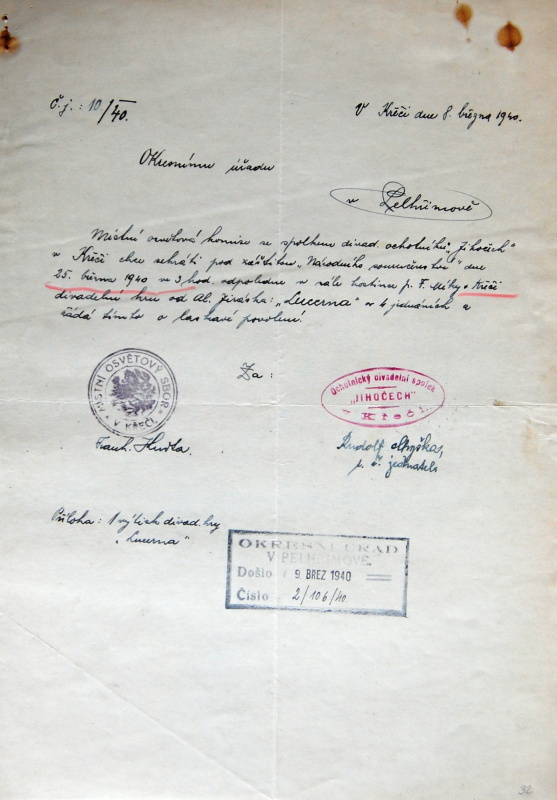 Č. j.: 10/40.
V Křeči dne 8. března 1940.
Okresnímu úřadu
v Pelhřimově
Místní osvětová komise se spolkem divad. ochotníků „Jihočech"
v Křeči chce sehráti pod záštitou „Národního souručenství" dne
25. března 1940 ve 3 hod. odpoledne v sále hostince p. F. v Křeči
divadelní hru od Al. Jiráska: „Lucerna" ve 4 jednáních a
žádá tímto o laskavé povolení.
Za:
MÍSTNÍ OSVĚTOVÝ SBOR
V KŘEČI.
Ochotnický divadelní spolek
"JIHOČECH"
v Křeči.
Frant.
Rudolf
t. č. jednatel
Příloha: 1 výtisk divad. hry
„Lucerna"
OKRESNÍ ÚŘAD
V PELHŘIMOVĚ.
Došlo 9. BŘEZ 1940
Číslo 2/106/40.
32